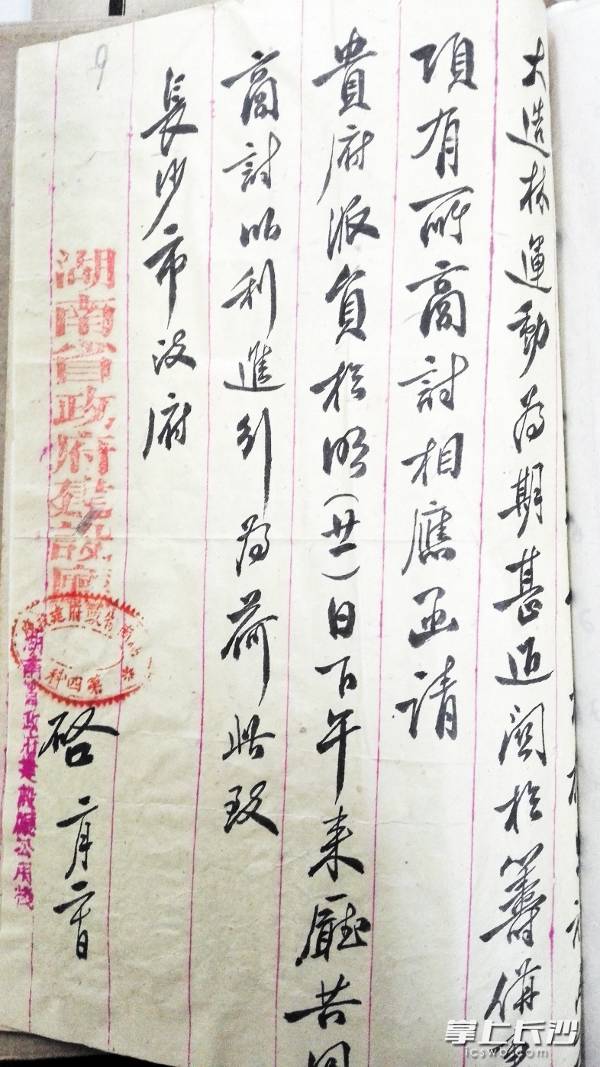 大造林運動为期甚近関於籌備事
項有所商討相應函請
貴府派員於明(廿一)日下午来廳共同
商討以利進行为荷此致
長沙市政府
湖南省政府建設廳
啓 二月二十日
第四科
湖南省政府建設廳公用牋
9
掌上长沙
icswb.com